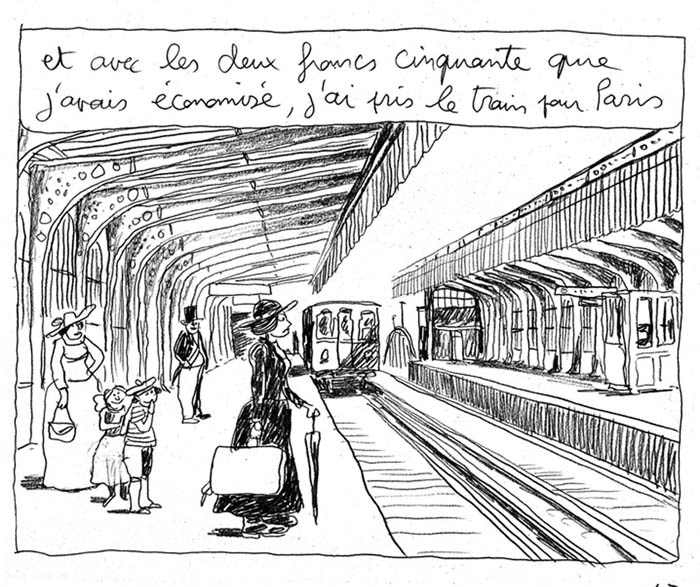 et avec les deux francs cinquante que
j'avais économisé, j'ai pris le train pour Paris